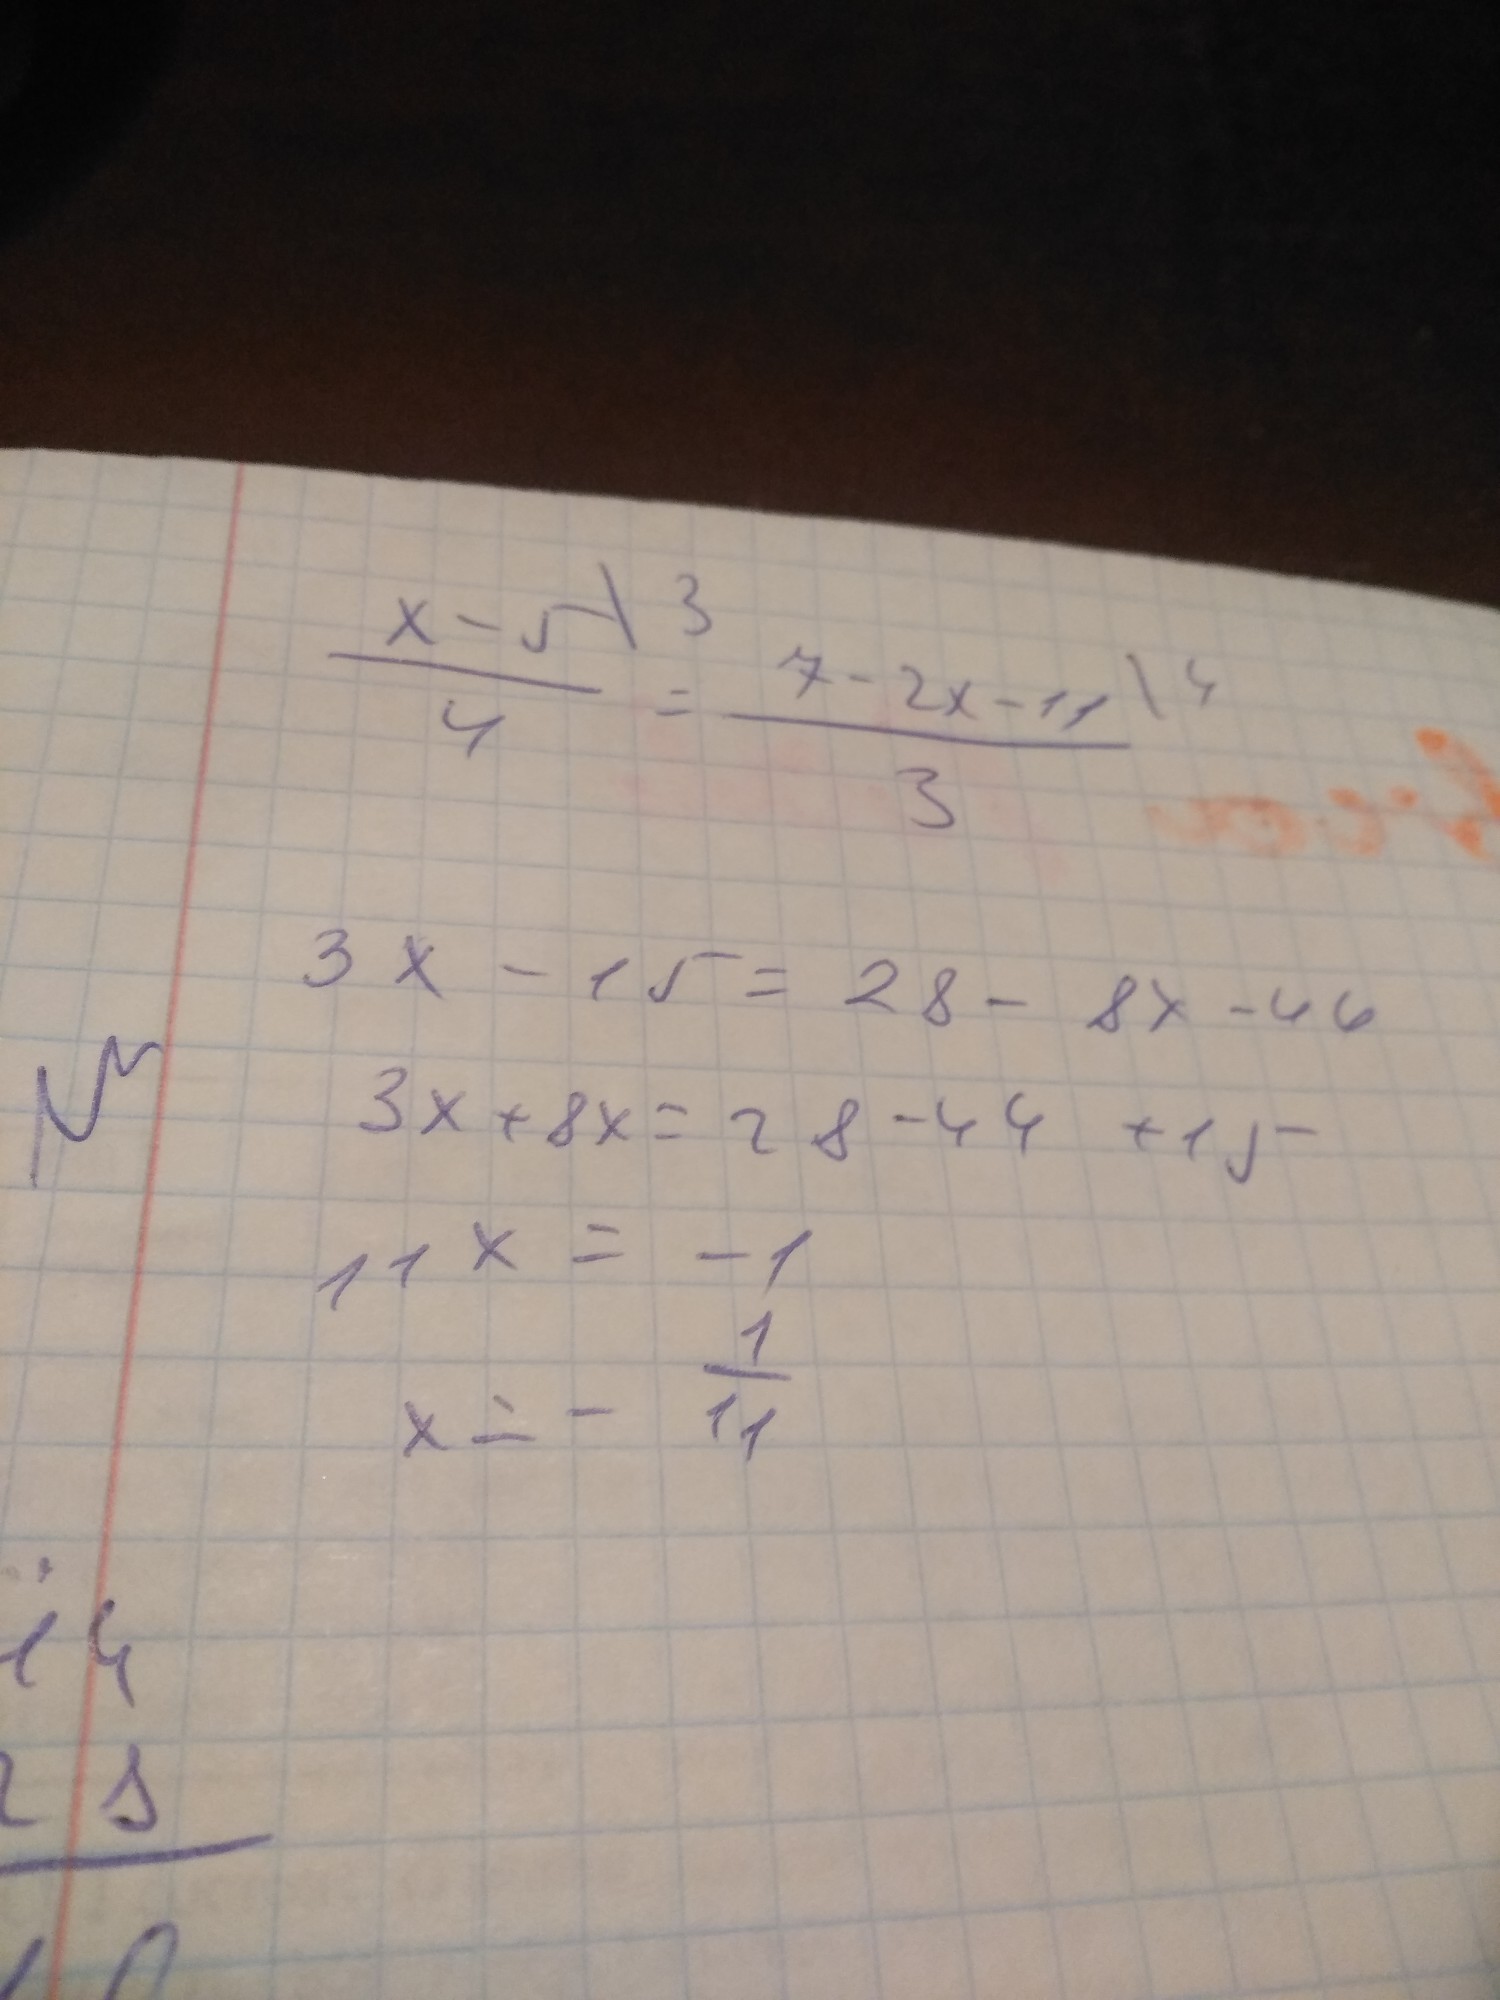 x-5\3 / 4 = 7-2x-11\4 / 3
3x - 15 = 28 - 8x - 44
3x + 8x = 28 - 44 + 15
11x = -1
x = - 1/11
14
28